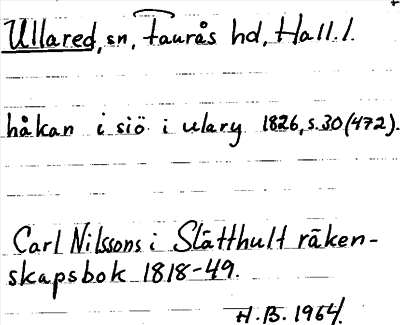 Ullared, sn, Faurås hd, Hall.l.
håkan i siö i ulary 1826, s.30(472).
Carl Nilssons i Slätthult räken-
skapsbok 1818-49.
H.B. 1964.